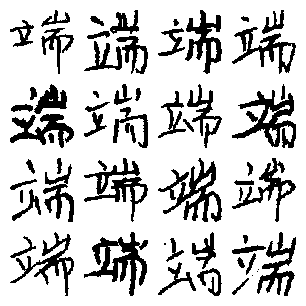 端端端端
端端端端
端端端端
端端端端